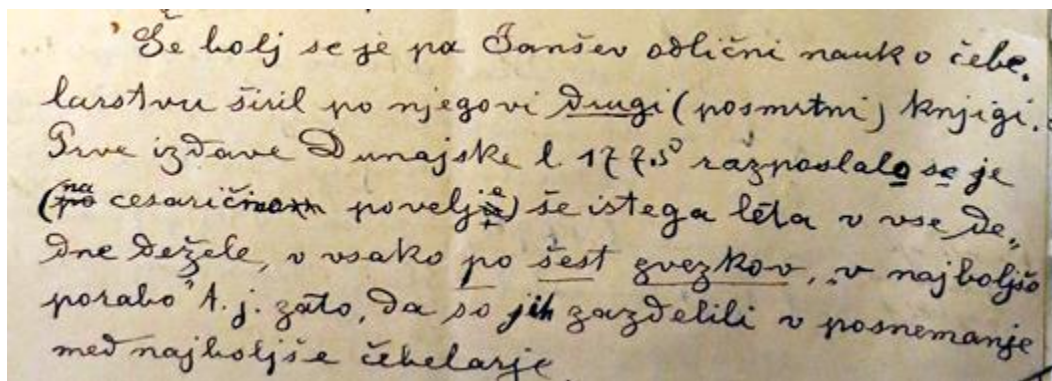 Še bolj se je pa Janšev odlični nauk o čebe-
larstvu širil po njegovi drugi (posmrtni) knjigi.
Prve izdave Dunajske l. 1775⁰ razposlalo se je
(na cesaričin povelje) še istega léta v vse de„
dne dežele, v vsako po šest zvezkov, „v najboljšo
porabo" t. j. zato, da so jih zazdelili v posnemanje
med najboljše čebelarje